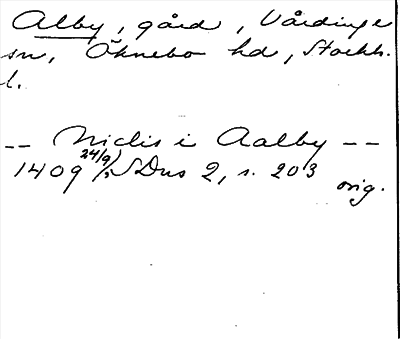 Alby, gård, Vårdinge
sn, Öknebo hd, Stockh.
l.
-- Niclis i Aalby --
1409 24/9, SDns 2, s. 203
orig.